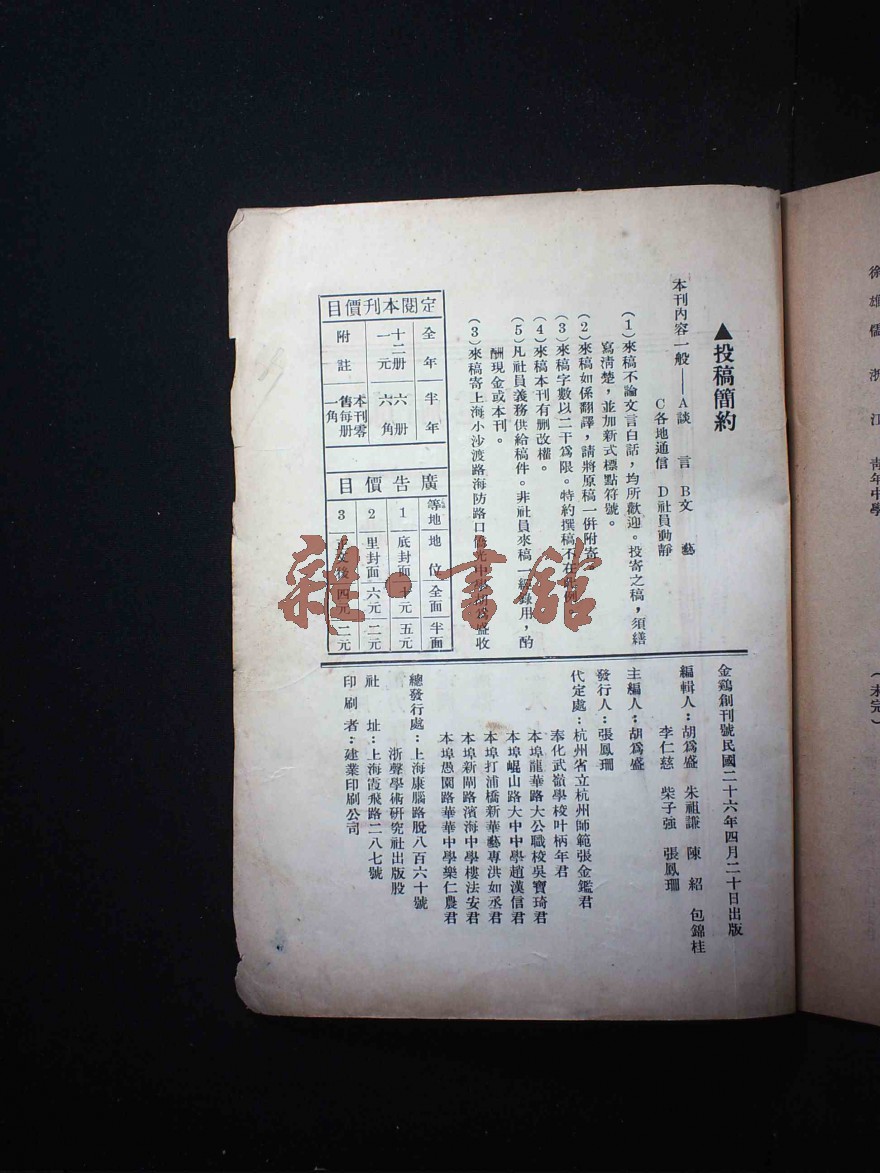 ▲投稿簡約
本刊内容一般——A談　言　B文　藝
C各地通信　D社員動靜
(1)來稿不論文言白話，均所歡迎。投寄之稿，須繕
寫清楚，並加新式標點符號。
(2)來稿如係翻譯，請將原稿一併附寄
(3)來稿字數以二千爲限。特約撰稿不在此例。
(4)來稿本刊有删改權。
(5)凡社員義務供給稿件。非社員來稿一經錄用，酌
酬現金或本刊。
(3)來稿寄上海小沙渡路海防路口僑光中學胡爲盛收
定閱本刊價目
全年　半年
十二册一元　六册六角
附註　本刊零售每册一角
廣告價目
等地　地位　全面　半面
1　底封面　十元　五元
2　里封面　六元　二元
3　正文後　四元　二元
金鷄創刊號民國二十六年四月二十日出版
編輯人：胡爲盛　朱祖謙　陳紹　包錦桂
李仁慈　柴子強　張鳳珊
主編人：胡爲盛
發行人：張鳳珊
代定處：杭州省立杭州師範張金鑑君
奉化武嶺學校叶柄年君
本埠龍華路大公職校吳寶琦君
本埠崐山路大中中學趙漢信君
本埠打浦橋新華藝專洪如丞君
本埠新閘路濱海中學樓法安君
本埠愚園路華華中學樂仁農君
總發行處：上海康腦路脫八百六十號
浙聲學術研究社出版股
社址：上海霞飛路二八七號
印刷者：建業印刷公司
徐雄儒　浙江　青年中學
(未完)
雜·書館